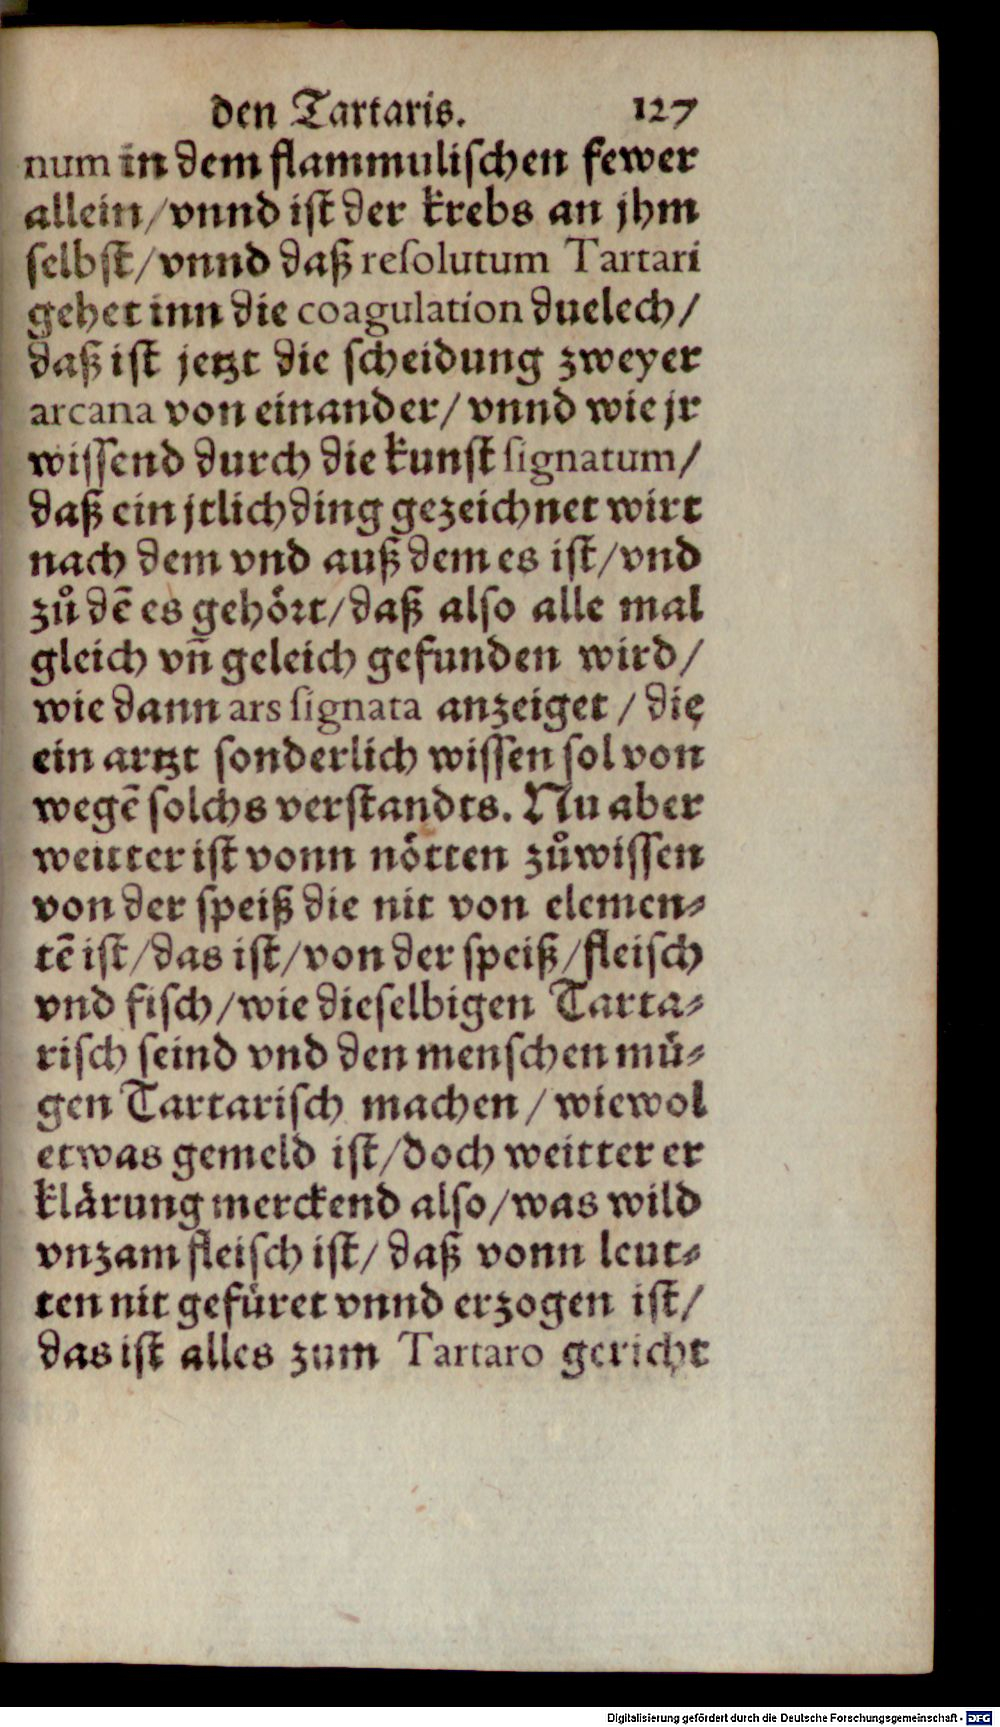 den Tartaris. 127
num in dem flammulischen fewer
allein/vnnd ist der krebs an jhm
selbst/vnnd daß resolutum Tartari
gehet inn die coagulation duelech/
daß ist jetzt die scheidung zweyer
arcana von einander/ vnnd wie jr
wissend durch die kunst signatum/
daß ein jtlich ding gezeichnet wirt
nach dem vnd auß dem es ist/vnd
zů dē es gehört/daß also alle mal
gleich vñ geleich gefunden wird/
wie dann ars signata anzeiget / die
ein artzt sonderlich wissen sol von
wegē solchs verstandts. Nu aber
weitter ist vonn nötten zůwissen
von der speiß die nit von elemen-
tē ist/das ist/von der speiß/fleisch
vnd fisch/wie dieselbigen Tarta-
risch seind vnd den menschen mü-
gen Tartarisch machen/wiewol
etwas gemeld ist/doch weitter er
klärung merckend also/was wild
vnzam fleisch ist/ daß vonn leut-
ten nit gefüret vnnd erzogen ist/
das ist alles zum Tartaro gericht
Digitalisierung gefördert durch die Deutsche Forschungsgemeinschaft - DFG